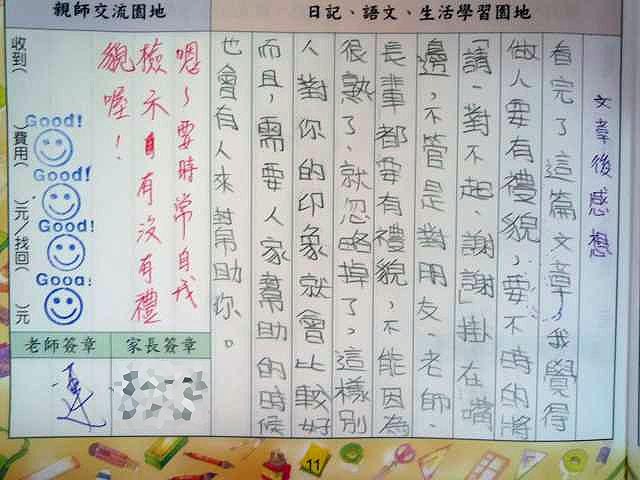 日記、語文、生活學習園地
文章後感想
看完了這篇文章，我覺得
做人要有禮貌，要不時的將
「請、對不起、謝謝」掛在嘴
邊，不管是對朋友、老師、
長輩都要有禮貌，不能因為
很熟了、就忽略掉了，這樣別
人對你的印象就會比較好
而且，需要人家幫助的時候
也會有人來幫助你。
親師交流園地
嗯~要時常自我
檢示自有沒有禮
貌喔！
Good!
Good!
Good!
Good!
收到( )費用( )元/找回( )元
老師簽章
家長簽章
11